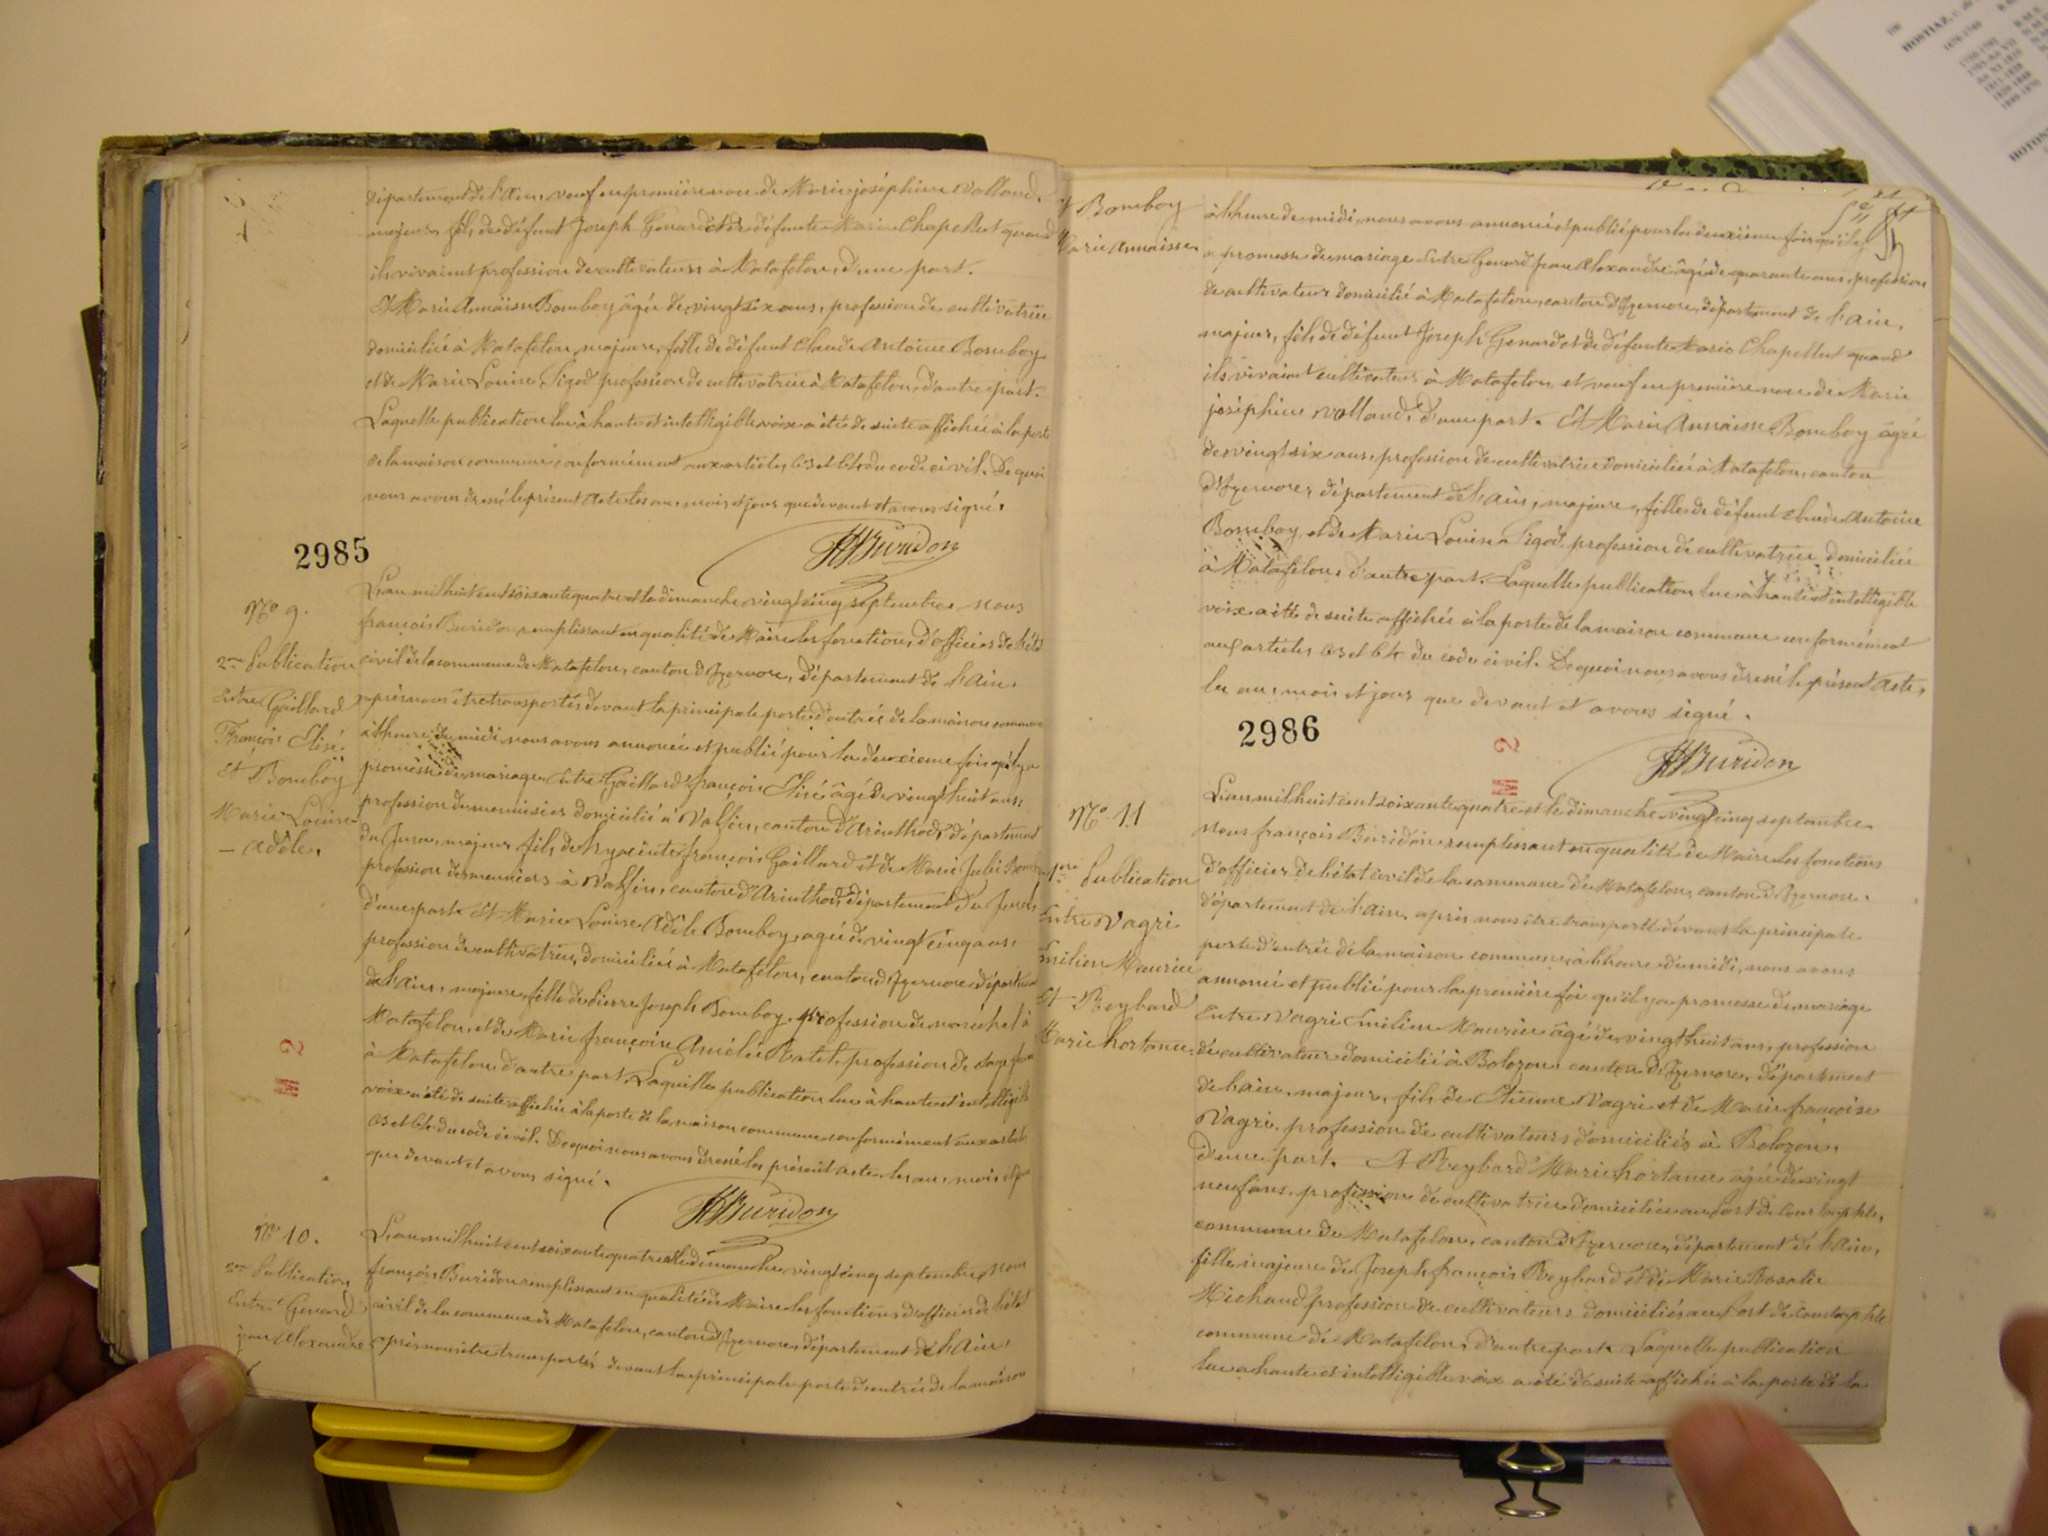 département de l'ain, veuf en première noce de Marie joséphine Volland,
majeur, fils de défunt Joseph Genard et de défunte Marie Chapellut quand
ils vivaient profession de cultivateurs à Matafelon, d'une part.
Et Marie Annaïsse Bomboy âgée de vingt six ans, profession de cultivatrice
domiciliée à Matafelon, majeure, fille de défunt Claude Antoine Bomboy
et de Marie Louise Sigod profession de cultivatrice à Matafelon, d'autre part.
Laquelle publication lue à haute et intelligible voix a été de suite affichée à la porte
de la maison commune conformément aux articles 63 et 64 du code civil. De quoi
nous avons dressé le présent acte les an, mois et jour que devant et avons signé.
Buridon
2985
No 9.
2me Publication
Entre Gaillard
François Elisé
Et Bomboy
Marie Louise
- Adèle.
L'an mil huit cent soixante quatre et le dimanche vingt cinq septembre, Nous
françois Buridon, remplissant en qualité de Maire les fonctions d'officier de l'état
civil de la commune de Matafelon, canton d'Izernore, département de l'ain,
après nous être transportés devant la principale porte d'entrée de la maison commune
à l'heure de midi, nous avons annoncé et publié pour la deuxième fois qu'il y a
promesse de mariage Entre Gaillard françois Elisé âgé de vingt huit ans,
profession de menuisier domicilié à Valfin, canton d'Arinthod, département
du Jura, majeur fils de hyacinte françois Gaillard et de Marie Julie
profession de meuniers à Valfin, canton d'Arinthod, département du Jura,
d'une part. Et Marie Louise Adèle Bomboy, agée de vingt cinq ans,
profession de cultivatrice, domiciliée à Matafelon, canton d'Izernore département
de l'ain, majeure, fille de Pierre Joseph Bomboy, profession de maréchal à
Matafelon, et de Marie françoise Amélie Ratet, profession de sage femme
à Matafelon, d'autre part. Laquelle publication lue à haute et intelligible
voix a été de suite affichée à la porte de la maison commune conformément aux articles
63 et 64 du code civil. De quoi nous avons dressé le présent acte les an, mois et jour
que devant et avons signé.
Buridon
M 2
No 10.
2me Publication
Entre Genard
jean Alexandre
L'an mil huit cent soixante quatre et le dimanche vingt cinq septembre, Nous
françois Buridon remplissant en qualité de Maire les fonctions d'officier de l'état
civil de la commune de Matafelon, canton d'Izernore, département de l'Ain,
après nous être transportés devant la principale porte d'entrée de la maison
Bomboy
Marie Annaïsse
à l'heure de midi, nous avons annoncé et publié pour la deuxième fois qu'il y
a promesse de mariage Entre Genard jean Alexandre âgé de quarante ans, profession
de cultivateur domicilié à Matafelon, canton d'Izernore, département de l'ain,
majeur, fils de défunt Joseph Genard et de défunte Marie Chapellut quand
ils vivaient cultivateurs à Matafelon, et veuf en première noce de Marie
joséphine Volland, d'une part. Et Marie Annaïsse Bomboy âgée
de vingt six ans, profession de cultivatrice domiciliée à Matafelon, canton
d'Izernore, département de l'ain, majeure, fille de défunt Claude Antoine
Bomboy, et de Marie Louise Sigod, profession de cultivatrice, domiciliée
à Matafelon, d'autre part. Laquelle publication lue à haute et intelligible
voix a été de suite affichée à la porte de la maison commune conformément
aux articles 63 et 64 du code civil. De quoi nous avons dressé le présent acte,
les an, mois et jour que devant et avons signé.
2986
M 2
Buridon
No 11
1ère Publication
Entre Vagri
Emilien Maurice
Et Reybard
Marie hortance
L'an mil huit cent soixante quatre et le dimanche vingt cinq septembre.
Nous françois Buridon remplissant en qualité de Maire les fonctions
d'officier de l'état civil de la commune de Matafelon, canton d'Izernore,
département de l'ain, après nous être transporté devant la principale
porte d'entrée de la maison commune, à l'heure de midi, nous avons
annoncé et publié pour la première foi qu'il y a promesse de mariage
Entre Vagri Emilien Maurice âgé de vingt huit ans, profession
de cultivateur domicilié à Bolozon, canton d'Izernore, département
de l'ain, majeur, fils de Etienne Vagri et de Marie françoise
Vagri, profession de cultivateurs domiciliés à Bolozon,
d'une part. Et Reybard Marie hortance âgée de vingt
neuf ans, profession de cultivatrice domiciliée au Port de
commune de Matafelon, canton d'Izernore, département de l'ain,
fille majeure de Joseph françois Reybard et de Marie Rosalie
Michaud profession de cultivateurs domiciliés au Port de
commune de Matafelon, d'autre part. Laquelle publication
lue a haute et intelligible voix a été de suite affichée à la porte de la
HOTON